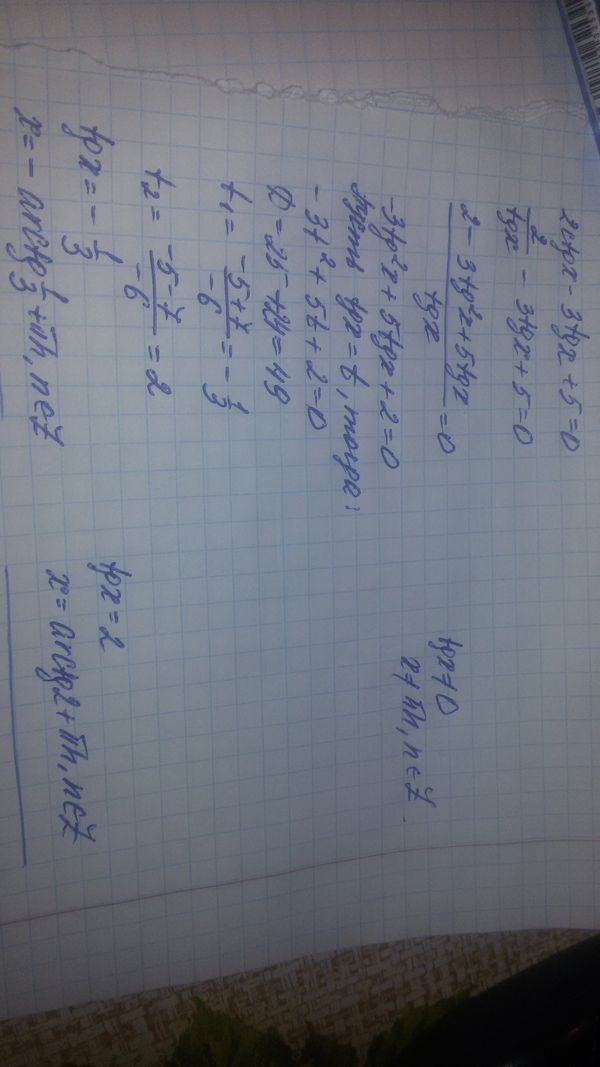 2ctgx - 3tgx + 5 = 0
2/tgx - 3tgx + 5 = 0
(2 - 3tg²x + 5tgx)/tgx = 0
tgx ≠ 0
x ≠ πn, n∈Z
-3tg²x + 5tgx + 2 = 0
Пусть tgx = t, тогда:
-3t² + 5t + 2 = 0
D = 25 + 24 = 49
t₁ = (-5+7)/-6 = -1/3
t₂ = (-5-7)/-6 = 2
tgx = -1/3
x = -arctg 1/3 + πn, n∈Z
tgx = 2
x = arctg2 + πn, n∈Z